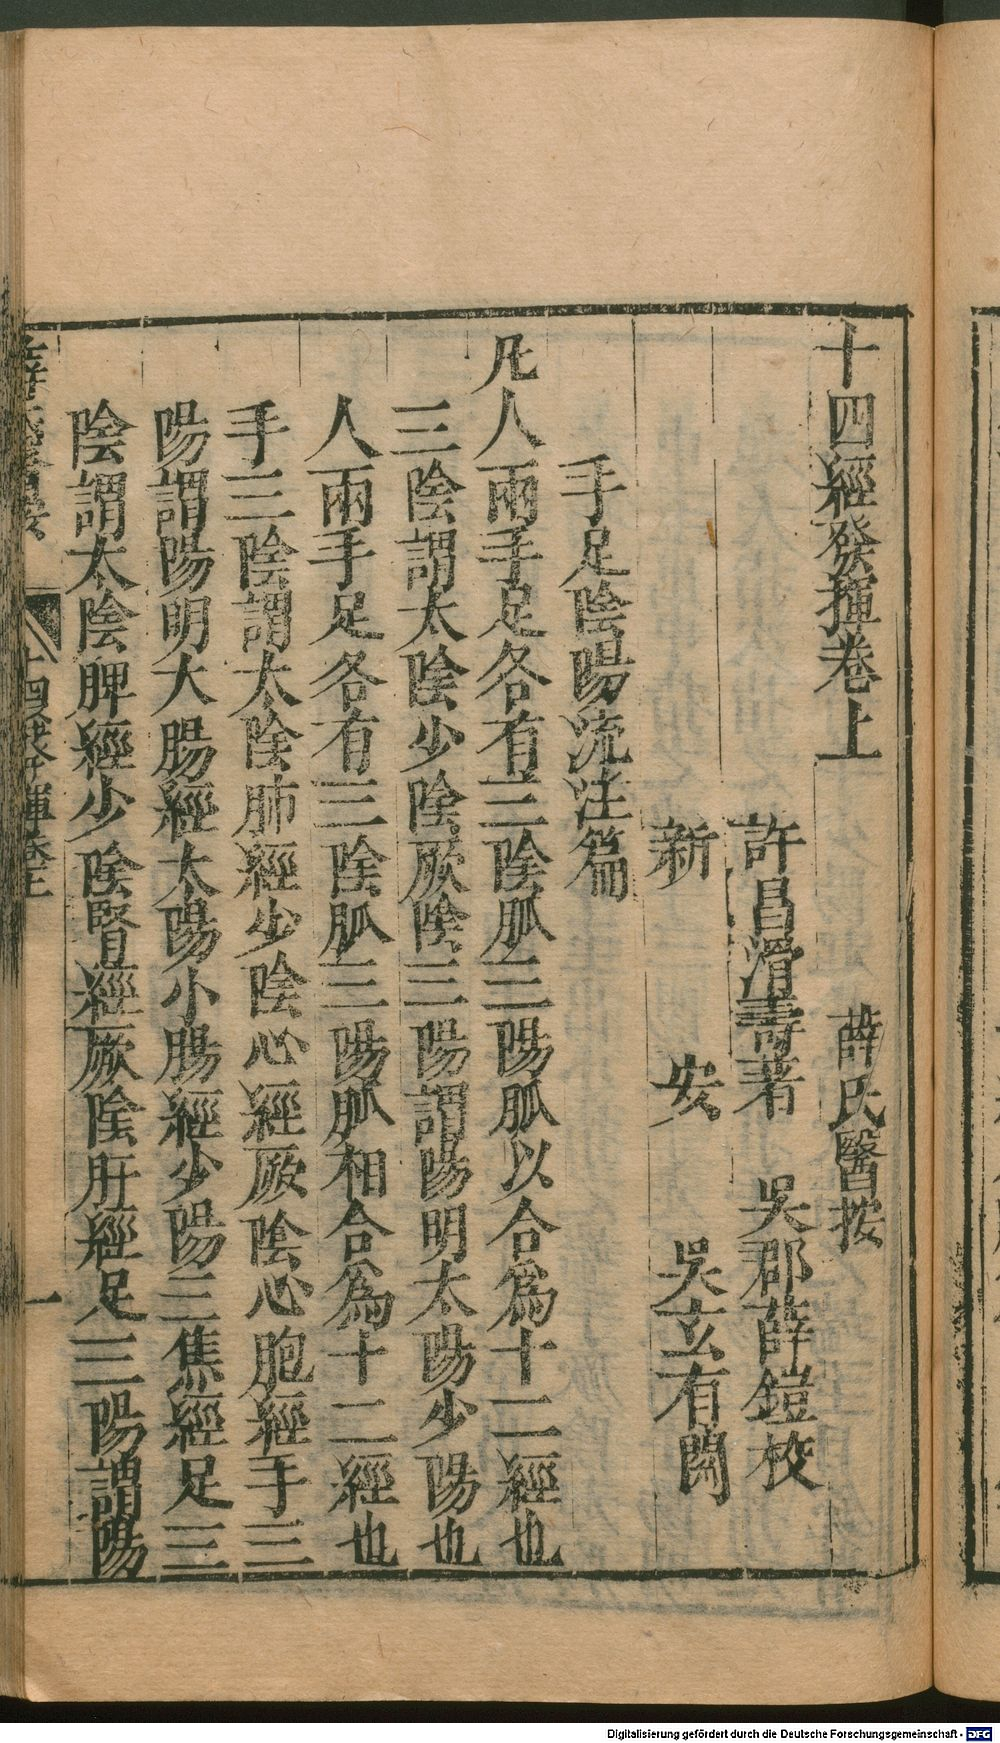 十四經發揮卷上　薛氏醫按
許昌滑壽著　吳郡薛鎧校
新安　吳玄有閱
手足陰陽流注篇
凡人兩手足各有三陰脈三陽脈以合爲十二經也
三陰謂太陰少陰厥陰三陽謂陽明太陽少陽也
人兩手足各有三陰脈三陽脈相合爲十二經也
手三陰謂太陰肺經少陰心經厥陰心胞經手三
陽謂陽明大腸經太陽小腸經少陽三焦經足三
陰謂太陰脾經少陰腎經厥陰肝經足三陽謂陽
十四經發揮卷上　一
Digitalisierung gefördert durch die Deutsche Forschungsgemeinschaft - DFG